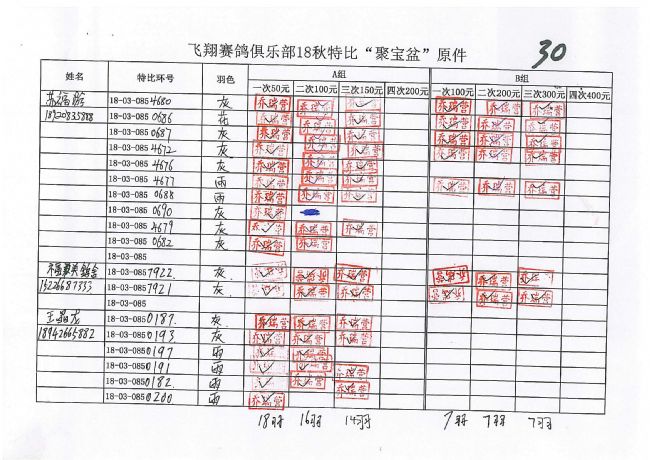 飞翔赛鸽俱乐部18秋特比“聚宝盆”原件 30
姓名 特比环号 羽色 A组 B组
一次50元 二次100元 三次150元 四次200元 一次100元 二次200元 三次300元 四次400元
18-03-085 4680 灰 乔瑞营 乔瑞营 乔瑞营 乔瑞营 乔瑞营
18-03-085 0686 花 乔瑞营 乔瑞营 乔瑞营 乔瑞营 乔瑞营
18-03-085 0687 灰 乔瑞营 乔瑞营 乔瑞营 乔瑞营 乔瑞营 乔瑞营
18-03-085 4672 灰 乔瑞营 乔瑞营 乔瑞营 乔瑞营 乔瑞营 乔瑞营
18-03-085 4676 灰 乔瑞营 乔瑞营 乔瑞营
18-03-085 4677 雨 乔瑞营 乔瑞营 乔瑞营 乔瑞营 乔瑞营 乔瑞营
18-03-085 0688 雨 乔瑞营 乔瑞营 乔瑞营
18-03-085 0690 灰 乔瑞营
18-03-085 4679 灰 乔瑞营 乔瑞营 乔瑞营
18-03-085 0682 灰 乔瑞营 乔瑞营
18-03-085
18-03-085 7922 灰 乔瑞营 乔瑞营
18-03-085 7921 灰 乔瑞营 乔瑞营 乔瑞营 乔瑞营
18-03-085
18-03-085 0187 灰 乔瑞营 乔瑞营 乔瑞营
18942664882 18-03-085 0193 灰 乔瑞营 乔瑞营 乔瑞营
18-03-085 0197 雨 乔瑞营
18-03-085 0191 雨 乔瑞营 乔瑞营
18-03-085 0182 雨 乔瑞营 乔瑞营
18-03-085 0200 雨 乔瑞营
18羽 16羽 14羽 7羽 7羽 7羽